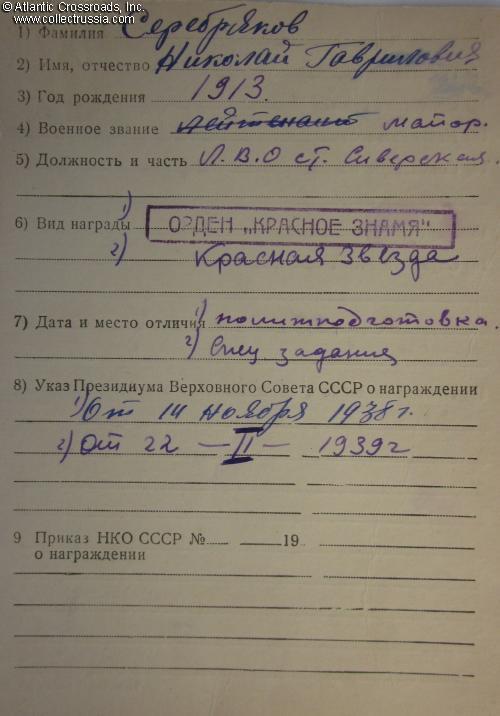 © Atlantic Crossroads, Inc.
www.collectrussia.com
1) Фамилия Серебряков
2) Имя, отчество Николай Гаврилович
3) Год рождения 1913.
4) Военное звание лейтенант майор.
5) Должность и часть Л.В.О ст. Сиверская.
6) Вид награды 1) ОРДЕН „КРАСНОЕ ЗНАМЯ"
2) Красная Звезда
7) Дата и место отличия 1) политподготовка.
2) Спец задания
8) Указ Президиума Верховного Совета СССР о награждении
1) От 14 ноября 1938 г.
2) От 22 — II — 1939 г
9 Приказ НКО СССР № 19
о награждении